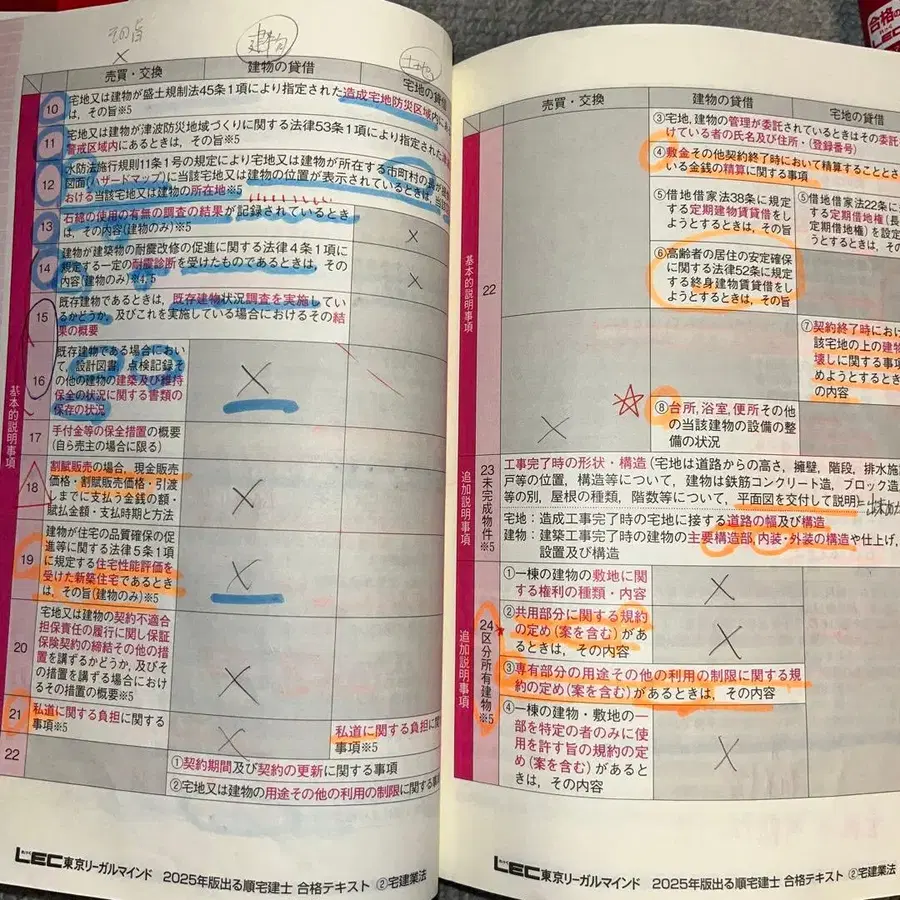 その旨
×
建物
土地
売買・交換
建物の貸借
宅地の貸借
基本的説明事項
10
宅地又は建物が盛土規制法45条1項により指定された造成宅地防災区域内にあ
は，その旨※5
11
宅地又は建物が津波防災地域づくりに関する法律53条1項により指定された
警戒区域内にあるときは，その旨※5
12
水防法施行規則11条1号の規定により宅地又は建物が所在する市町村の長が
図面(ハザードマップ)に当該宅地又は建物の位置が表示されているときは，当該
おける当該宅地又は建物の所在地※5
13
石綿の使用の有無の調査の結果が記録されているとき
は，その内容(建物のみ)※5
×
14
建物が建築物の耐震改修の促進に関する法律4条1項に
規定する一定の耐震診断を受けたものであるときは，その
内容(建物のみ)※4,5
×
15
既存建物であるときは，既存建物状況調査を実施してい
るかどうか，及びこれを実施している場合におけるその結
果の概要
16
既存建物である場合におい
て，設計図書，点検記録そ
の他の建物の建築及び維持
保全の状況に関する書類の
保存の状況
×
17
手付金等の保全措置の概要
(自ら売主の場合に限る)
18
割賦販売の場合，現金販売
価格・割賦販売価格・引渡
しまでに支払う金銭の額・
賦払金額・支払時期と方法
×
19
建物が住宅の品質確保の促
進等に関する法律5条1項
に規定する住宅性能評価を
受けた新築住宅であるとき
は，その旨(建物のみ)※5
×
20
宅地又は建物の契約不適合
担保責任の履行に関し保証
保険契約の締結その他の措
置を講ずるかどうか，及びそ
の措置を講ずる場合におけ
るその措置の概要※5
×
21
私道に関する負担に関する
事項※5
×
私道に関する負担に関
事項※5
22
①契約期間及び契約の更新に関する事項
②宅地又は建物の用途その他の利用の制限に関する事
LEC東京リーガルマインド 2025年版出る順宅建士 合格テキスト ②宅建業法
合格の
LEC
売買・交換
建物の貸借
宅地の貸借
基本的説明事項
22
③宅地，建物の管理が委託されているときはその委託
けている者の氏名及び住所・(登録番号)
④敷金その他契約終了時において精算することとさ
いる金銭の精算に関する事項
⑤借地借家法38条に規定
する定期建物賃貸借をし
ようとするときは，その旨
⑤借地借家法22条に
する定期借地権(長
定期借地権)を設定
うとするときは，その
⑥高齢者の居住の安定確保
に関する法律52条に規定
する終身建物賃貸借をし
ようとするときは，その旨
⑦契約終了時にお
該宅地の上の建物
壊しに関する事項
めようとするとき
の内容
×
⑧台所，浴室，便所その他
の当該建物の設備の整
備の状況
追加説明事項
23
未完成物件※5
工事完了時の形状・構造(宅地は道路からの高さ，擁壁，階段，排水施
戸等の位置，構造等について，建物は鉄筋コンクリート造，ブロック造
等の別，屋根の種類，階数等について，平面図を交付して説明)
宅地：造成工事完了時の宅地に接する道路の幅及び構造
建物：建築工事完了時の建物の主要構造部，内装・外装の構造や仕上げ，
設置及び構造
追加説明事項
24
区分所有建物※5
①一棟の建物の敷地に関す
る権利の種類・内容
×
②共用部分に関する規約
の定め(案を含む)があ
るときは，その内容
×
③専有部分の用途その他の利用の制限に関する規
約の定め(案を含む)があるときは，その内容
④一棟の建物・敷地の一
部を特定の者のみに
使用を許す旨の規約の定
め(案を含む)があると
きは，その内容
×
LEC東京リーガルマインド 2025年版出る順宅建士 合格テキスト ②宅建業法